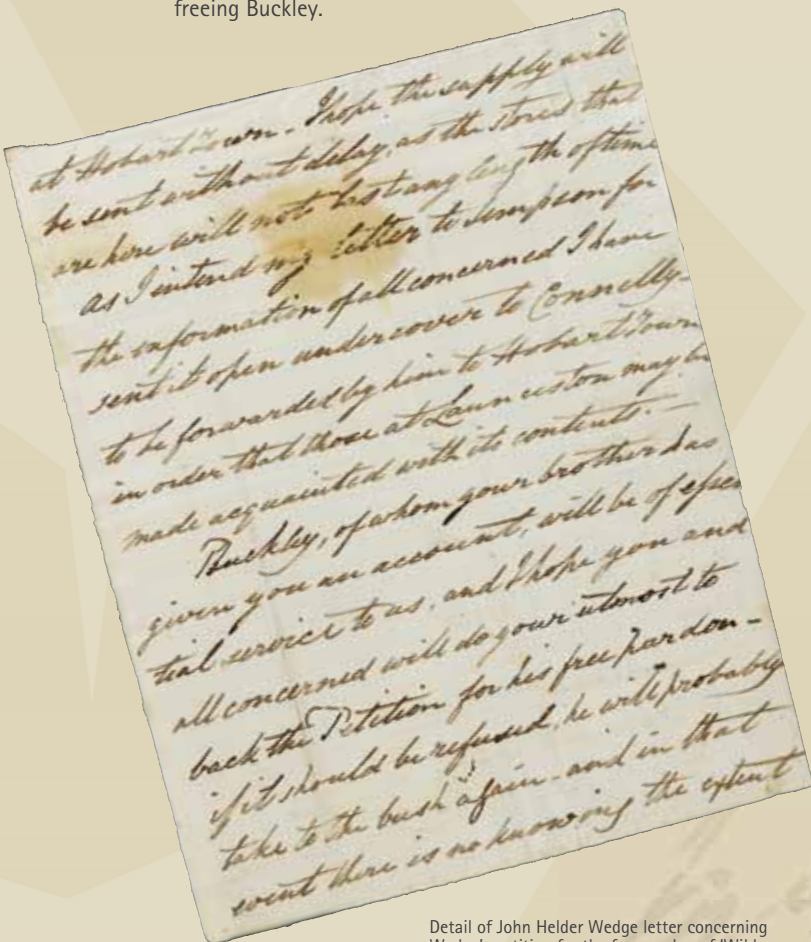 freeing Buckley.
at Hobart Town - I hope the supply will
be sent without delay, as the stores that
are here will not last any length of time
As I intend my letter to Simpson for
the information of all concerned I have
sent it open under cover to Connelly -
to be forwarded by him to Hobart Town
in order that those at Launceston may be
made acquainted with its contents. -
Buckley, of whom your brother has
given you an account, will be of essen
tial service to us, and I hope you and
all concerned will do your utmost to
back the Petition for his free pardon -
if it should be refused, he will probably
take to the bush again - and in that
event there is no knowing the extent
Detail of John Helder Wedge letter concerning